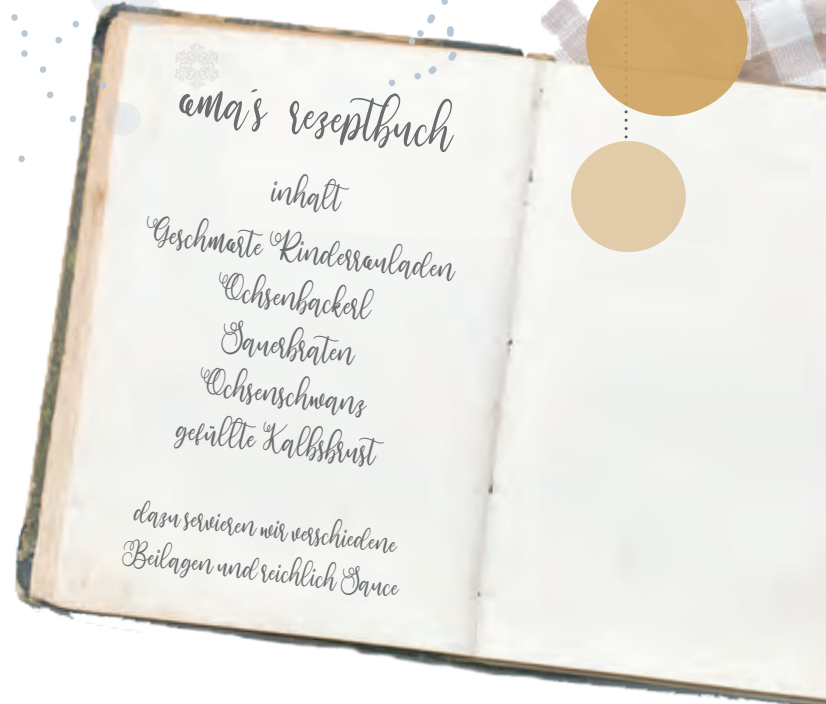 oma's rezeptbuch
inhalt
Geschmorte Rinderrouladen
Ochsenbackerl
Sauerbraten
Ochsenschwanz
gefüllte Kalbsbrust
dazu servieren wir verschiedene
Beilagen und reichlich Sauce